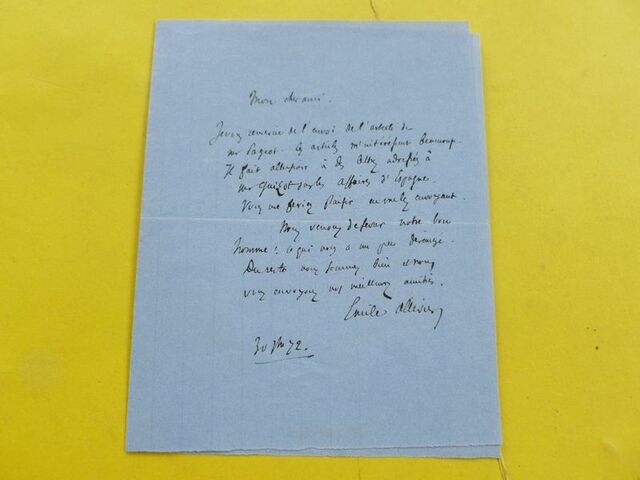 Mon cher ami.
Je vous remercie de l'envoi de l'article de
mr Pageot. Ces articles m'intéressent beaucoup.
Il fait allusion à des lettres adressées à
mr Guizot sur les affaires d'Espagne.
Vous me feriez plaisir en me les envoyant.
Nous venons de sevrer notre bon
homme : ce qui nous a un peu dérangé.
Du reste nous sommes bien et nous
vous envoyons nos meilleures amitiés.
Emile Ollivier
30 72.